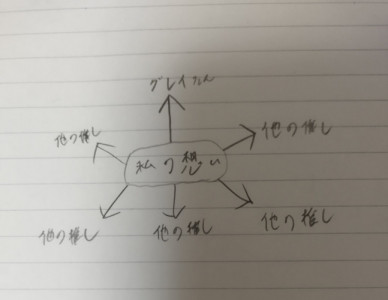 グレイたん
他の推し
他の推し
私の想い
他の推し
他の推し
他の推し